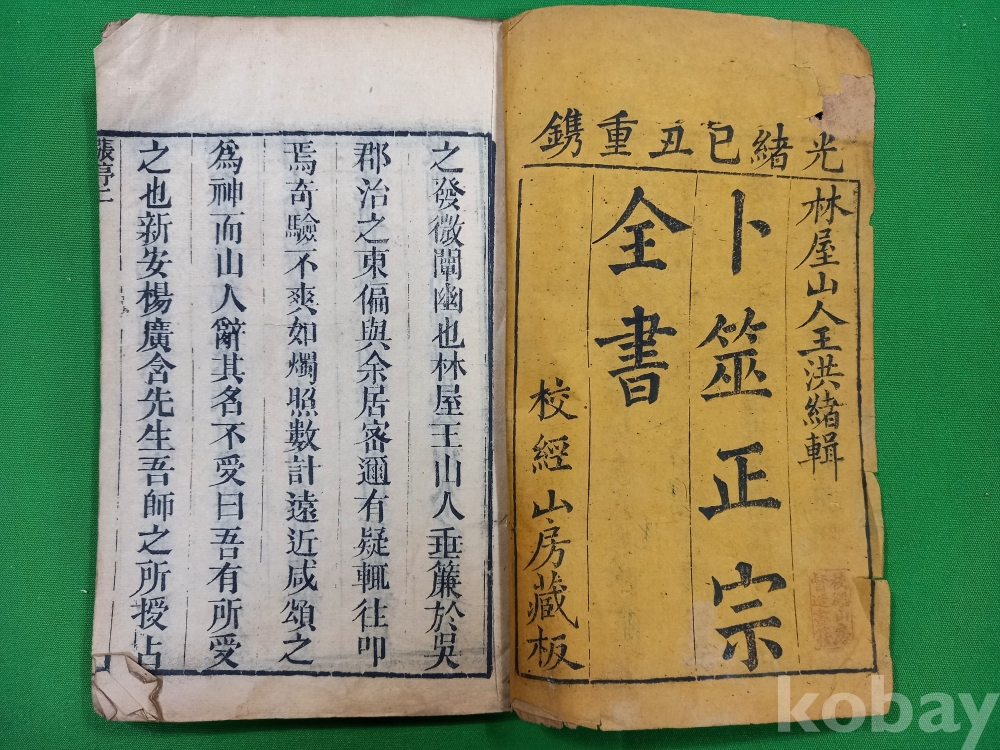 光緒已丑重鐫
林屋山人王洪緒輯
卜筮正宗
全書
校經山房藏板
之發微闡幽也林屋王山人垂簾於吳
郡治之東偏與余居密邇有疑輒往叩
焉奇驗不爽如燭照數計遠近咸頌之
為神而山人辭其名不受曰吾有所受
之也新安楊廣含先生吾師之所授占
張序二
kobay